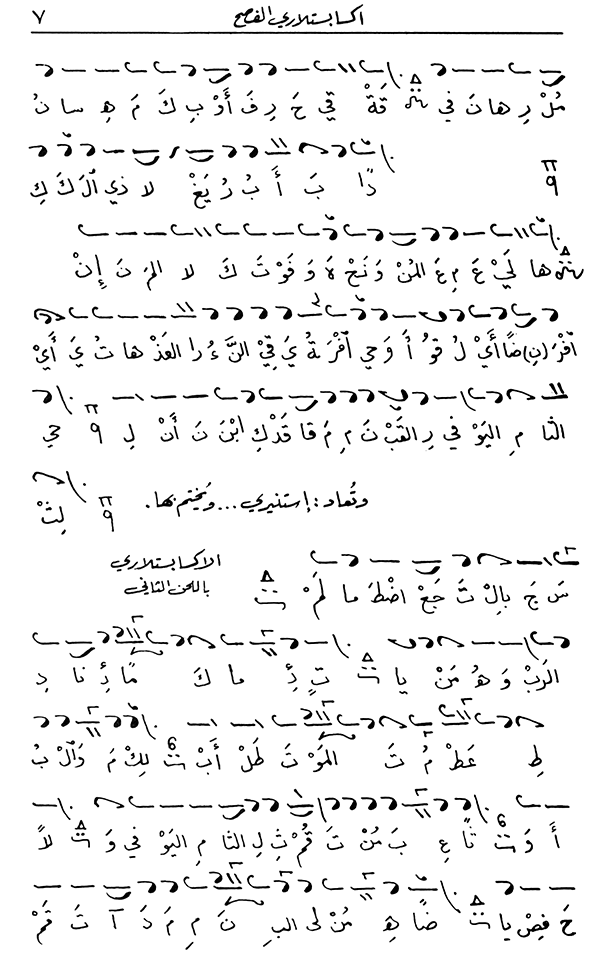 اكسابستلاري الفصح ٧
مُلْ رِ هانَ في قَةْ قي حَ رِ فَ أَوْ بِ كَ مَ هِ سانُ
دًا بَ أَ بُ رُ يَغْ لا ذي اَلْ كَ كِ
ها لَيْ عَ مِ عَ المُنْ وَ نَحْ هَ وَ فَوْ تَ كَ لا المَ نَ إِنْ
اَفْرَ (نِ) ضًا أَيْ لُ قو أُ وَ حي اَفْرَ ةُ يَ قِيْ النَّ ءُ را العَذْ ها تُ يَ أَيْ
الثا مِ اليَوْ في رِ القَبْ نَ مِ مَ قا قَدْ كِ ابْنَ نَ أَنْ لِ حي
وتُعاد: إستنيري...ويُختم بها. لِثْ
الاكسابستلاري
باللحن الثاني
سَ جَ بِالْ تَ جَعْ اضْطَ ما لَمْ
الرَبْ وَ هُ مَنْ يا تٍ ئِ ما كَ مًا ئِ نا دِ
طِ عَظْ مُ تَ المَوْ تَ طَلْ أَبْ لِكْ مَ وَالْ بُ
أَ وَ ثًا عِ بَ مُنْ تَ قُمْ ثِ لِ الثا مِ اليَوْ في وَ لًا
حَ فِصْ يا ضًا هِ مُنْ لى البِ نَ مِ مَ دَ آ تَ قَمْ